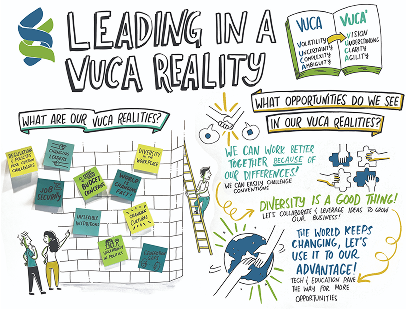 LEADING IN A
VUCA REALITY
VUCA
VOLATILITY
UNCERTAINTY
COMPLEXITY
AMBIGUITY
VUCA²
VISION
UNDERSTANDING
CLARITY
AGILITY
WHAT ARE OUR VUCA REALITIES?
DIVERSITY
IN THE
WORKFORCE
JOB
SECURITY
BUDGET
WORLD
CHANGING
FAST
WHAT OPPORTUNITIES DO WE SEE
IN OUR VUCA REALITIES?
WE CAN WORK BETTER
TOGETHER BECAUSE OF
OUR DIFFERENCES!
WE CAN EASILY CHALLENGE
CONVENTIONS
DIVERSITY IS A GOOD THING!
LET'S COLLABORATE & LEVERAGE IDEAS TO GROW
OUR BUSINESS!
THE WORLD KEEPS
CHANGING, LET'S
USE IT TO OUR
ADVANTAGE!
TECH & EDUCATION PAVE
THE WAY FOR MORE
OPPORTUNITIES